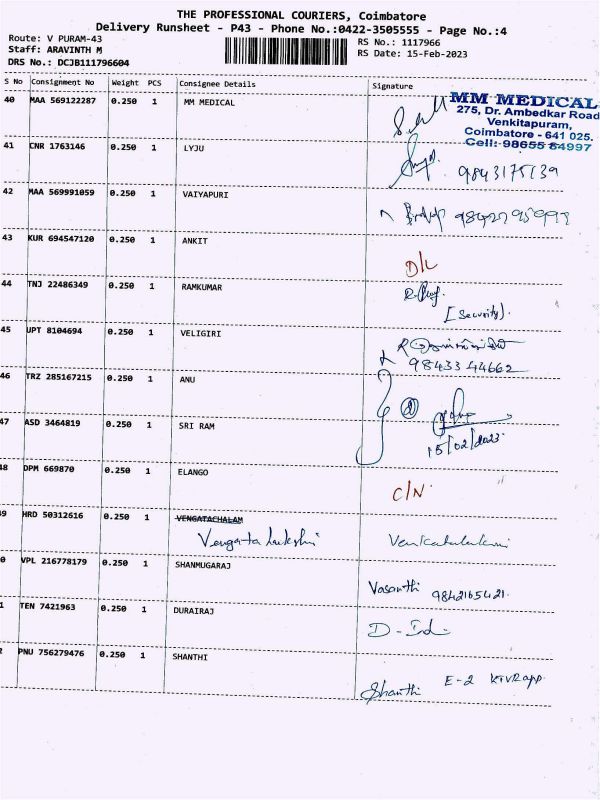 THE PROFESSIONAL COURIERS, Coimbatore
Delivery Runsheet - P43 - Phone No.:0422-3505555 - Page No.:4
Route: V PURAM-43
Staff: ARAVINTH M
DRS No.: DCJB111796604
RS No.: 1117966
RS Date: 15-Feb-2023
S No Consignment No Weight PCS Consignee Details Signature
40 MAA 569122287 0.250 1 MM MEDICAL
MM MEDICAL
275, Dr. Ambedkar Road
Venkitapuram,
Coimbatore - 641 025.
Cell: 98655 84997
41 CNR 1763146 0.250 1 LYJU
9843175139
42 MAA 569991059 0.250 1 VAIYAPURI
43 KUR 694547120 0.250 1 ANKIT
D/L
44 TNJ 22486349 0.250 1 RAMKUMAR
[Security).
45 UPT 8104694 0.250 1 VELIGIRI
98433 44662
46 TRZ 285167215 0.250 1 ANU
47 ASD 3464819 0.250 1 SRI RAM
15/02/2023
48 DPM 669870 0.250 1 ELANGO
C/N
9 HRD 50312616 0.250 1 VENGATACHALAM
Vengata lakshi Venkatalakshmi
0 VPL 216778179 0.250 1 SHANMUGARAJ
Vasanthi 9842165421
1 TEN 7421963 0.250 1 DURAIRAJ
2 PNU 756279476 0.250 1 SHANTHI
Shanthi E-2 KTVR app.